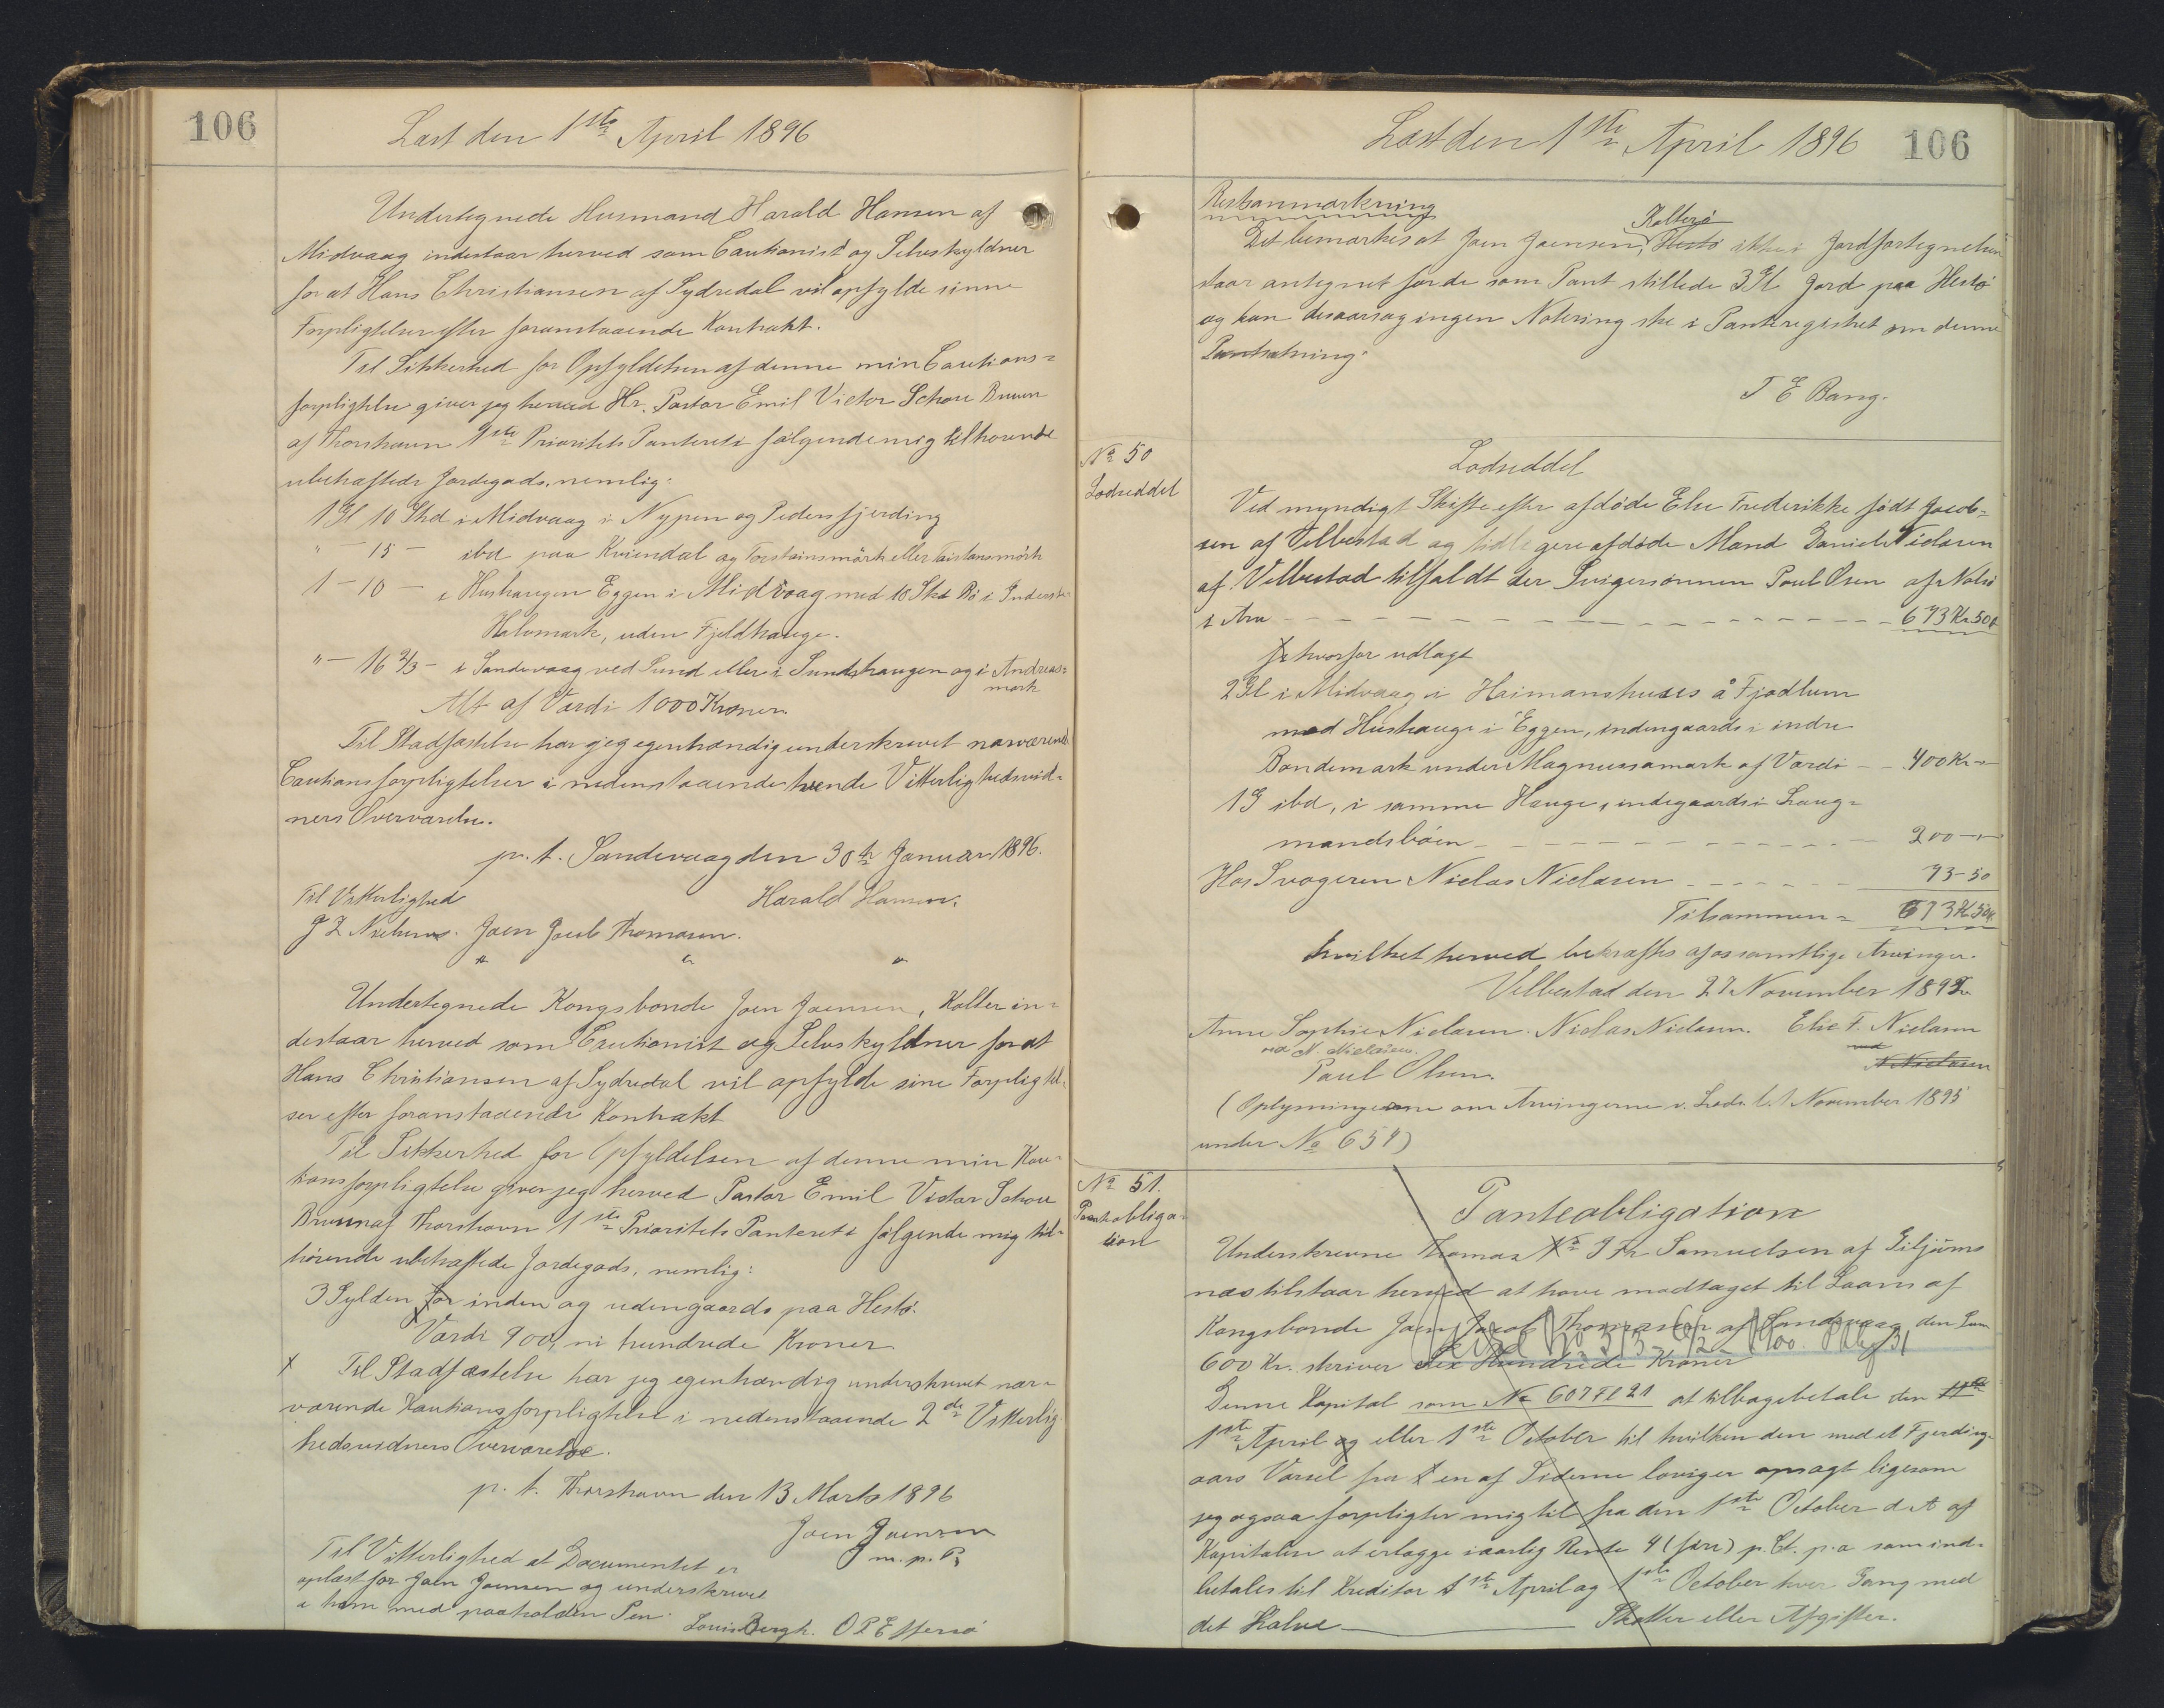 106
Læst den 1ste April 1896
Undertegnede Husmand Harald Hansen af
Midvaag indestaar herved som Cautionist og Selvskyldner
for at Hans Christiansen af Sydredal vil opfylde sinne
Forpligtelser efter foranstaaende Kontrakt.
Til Sikkerhed for Opfyldelsen af denne min Cautions=
forpligtelse giver jeg herved Hr. Pastor Emil Victor Schou Bruun
af Thorshavn 1ste Prioritets Panteret i følgende mig tilhørende
ubehæftede Jordegods, nemlig:
1 Gl 10 Skd i Midvaag i Nypen og Pedersfjerding
" — 15 — ibd paa Kviendal og Torstainsmørk eller Taistansmörk
1 — 10 — i Hushaugen Eggen i Midvaag med 10 Skd Bö i Inderste-
Halvmark, uden Fjeldhauge.
" — 16 2/3 — i Sandevaag ved Sund eller i Sundshaugen og i Andreas=
mark
Alt af Værdi 1000 Kroner.
Til Stadfæstelse har jeg egenhændig underskrevet nærværende
Cautionsforpligtelser i nedenstaaende tvende Vitterlighedsvid=
ners Overværelse.
p. t. Sandevaag den 30te Januar 1896.
Til Vitterlighed
Harald Hansen.
J Z Nielsen. Joen Jacob Thomasen.
" " "
Undertegnede Kongsbonde Joen Joensen, Kolter in=
destaar herved som Cautionist og Selvskyldner for at
Hans Christiansen af Sydredal vil opfylde sine Forpligtel=
ser efter foranstaaende Kontrakt
Til Sikkerhed for Opfyldelsen af denne min Kau=
tionsforpligtelse giver jeg herved Pastor Emil Victor Schou
Bruun af Thorshavn 1ste Prioritets Panteret i følgende mig til=
hørende ubehæftede Jordegods, nemlig:
3 Gylden Jor inden og udengaards paa Hestø.
Værdi 900, ni hundrede Kroner
x Til Stadfæstelse har jeg egenhændig underskrevet nær=
værende Kautionsforpligtelse i nedenstaaende 2de Vitterlig
hedsvidners Overværelse.
p. t. Thorshavn den 13 Marts 1896
Joen Joensen
m. p. P.
Til Vitterlighed at Documentet er
oplæst for Joen Joensen og underskrevet
a ham med paaholden Pen.
Louis Bergh. O P Effersö
Læst den 1ste April 1896 106
Retsanmærkning
Kolterø
Det bemærkes at Joen Joensen, Hestø ikke i Jordfortegnelsen
staar antegnet for de som Pant stillede 3 Gl Jord paa Hestø
og kan desaarsag ingen Notering ske i Panteregistret om denne
Pantsætning.
T E Bang.
No 50
Lodseddel
Lodseddel
Ved myndigt Skifte efter afdöde Else Frederikke födt Jacob=
sen af Velbestad og tidligere afdöde Mand Daniel Nielasen
af Velbestad tilfaldt der Svigersønnen Poul Olsen af Nolsö
i Arv — 673 Kr 50 ø
hvorfor udlagt
2 Gl i Midvaag i Haimanshuses å Fjodlum
med Hushauge i Eggen, indengaards i indre
Bondemark under Magnussamark af Værdi — 400 Kr "
1 G ibd, i samme Hauge, indegaards i Laug=
mandsbøen — 200 — "
Hos Svogeren Nielas Nielasen — 73 — 50
Tilsammen = 673 K 50 ø.
hvilket herved bekræftes af os samtlige Arvinger.
Velbestad den 27 November 1895
Anne Sophie Nielasen. Nielas Nielasen. Else F. Nielasen
ved N. Nielasen. ved
Poul Olsen. N Nielasen
(Oplysningerne om Arvingerne v. Lods. l. 1 November 1895
under No 654)
No 51.
Panteobliga=
tion
Panteobligation
Underskrevne Thomas J Fr Samuelsen af Giljums
næs tilstaar herved at have modtaget til Laans af
Kongsbonde Joen Jacob Thomasen af Sandevaag den Sum
600 Kr. skriver Sex Hundrede Kroner
Denne Kapital som No 607 Fl 21 at tilbagebetale den 11te
1ste April og eller 1ste October til hvilken den med et Fjerding-
aars Varsel fra en af Siderne loviger opsagt ligesom
jeg ogsaa forpligter mig til fra den 1ste October d. A. af
Kapitalen at erlægge i aarlig Rente 4 (fire) p. Ct. p. a som ind=
betales til Kreditor 1ste April og 1ste October hver Gang med
det Halve — Skatter eller Afgifter.